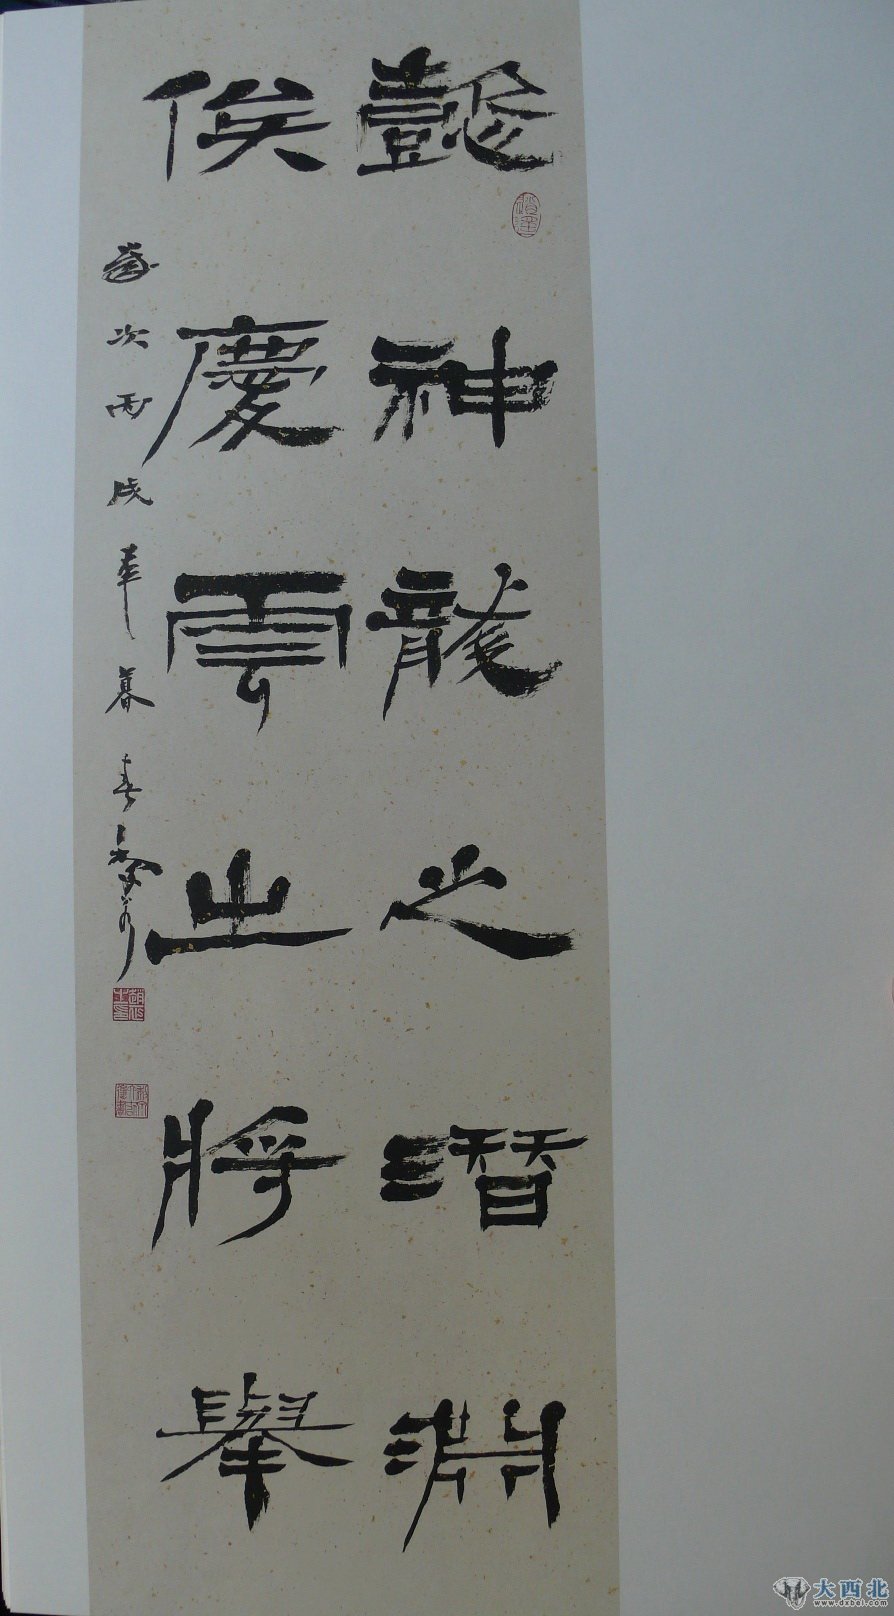 懿神龍之潛淵
俟慶雲出將舉
歲次丙戌年暮春
大西北
www.dxbei.com